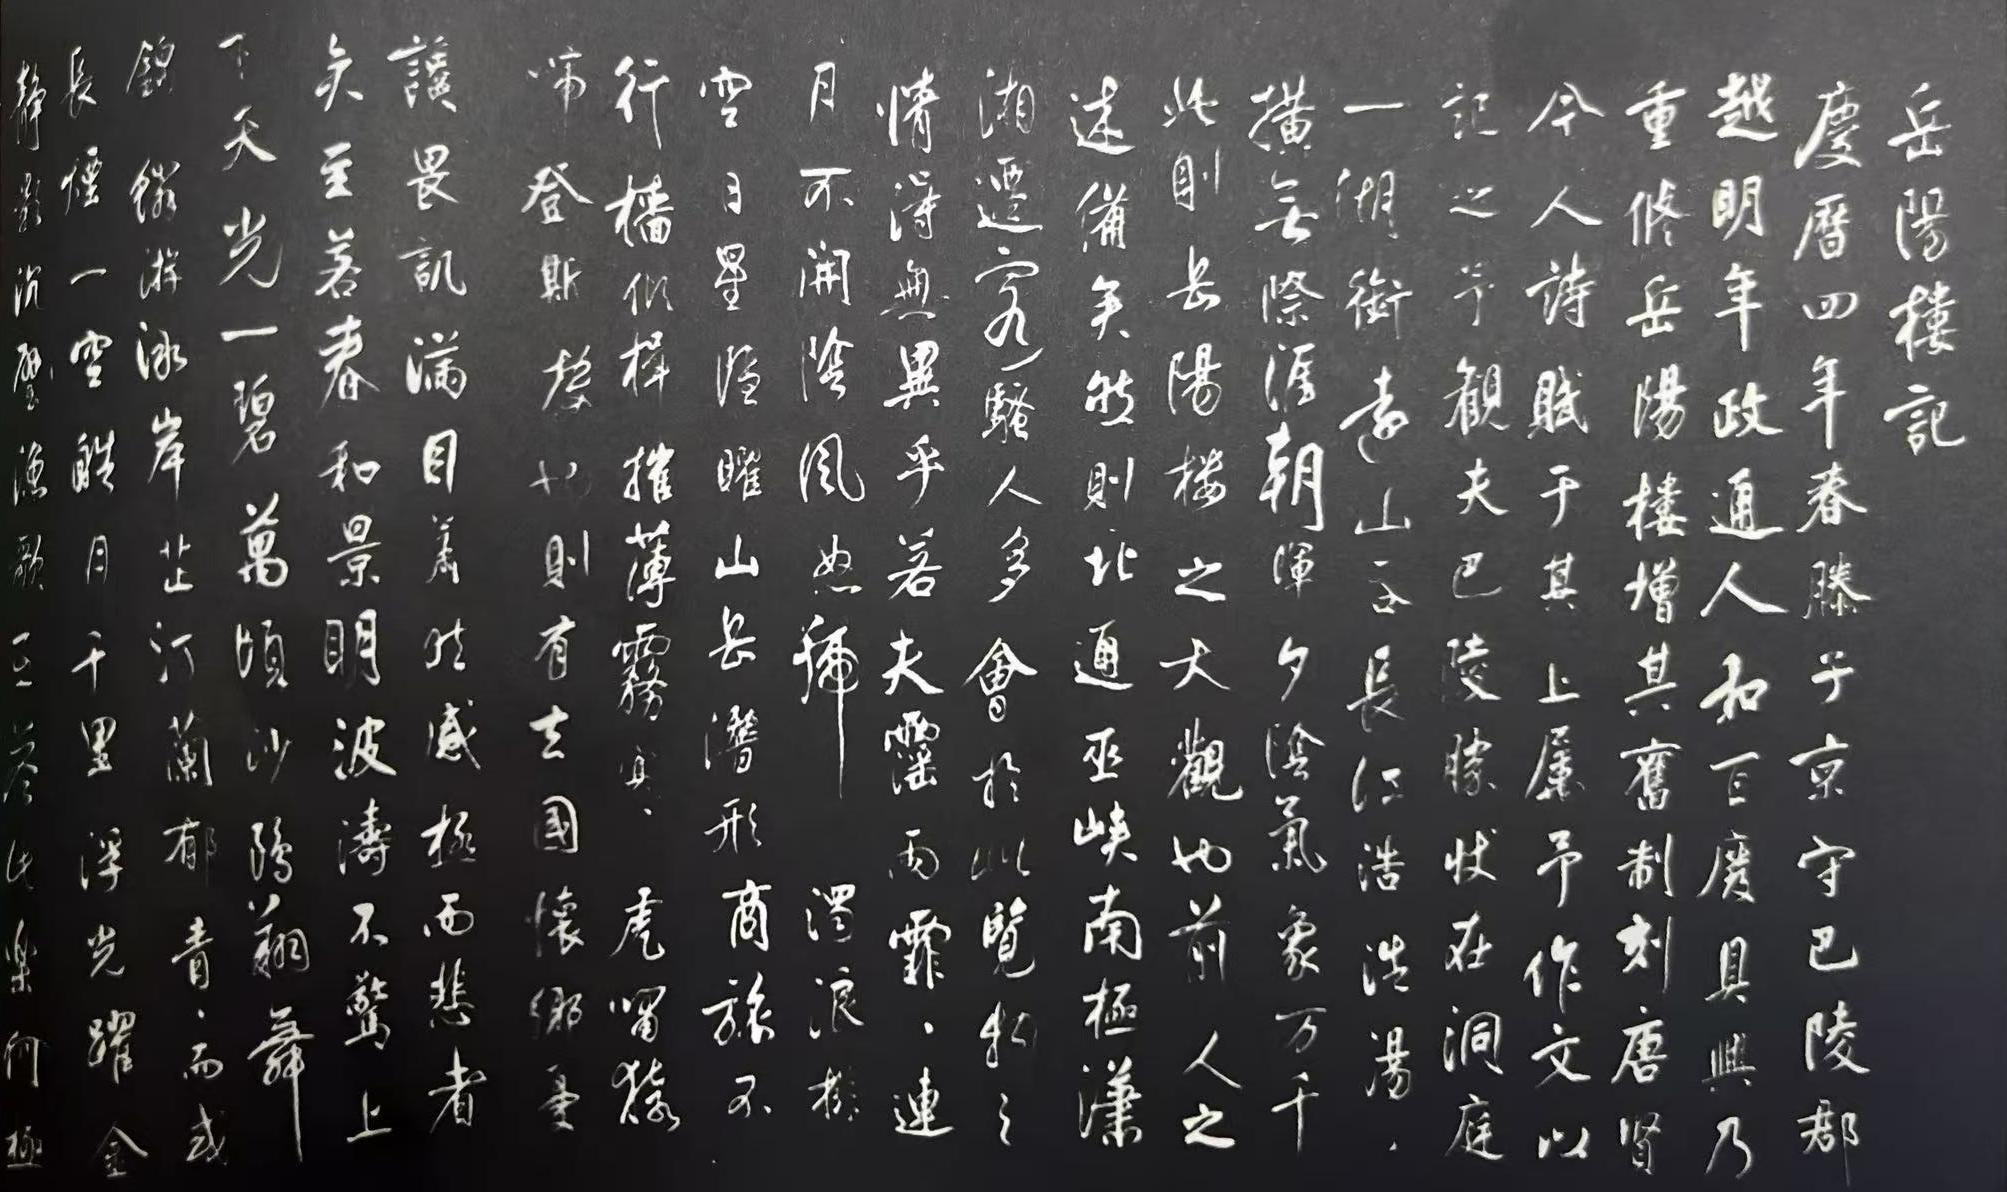 岳陽樓記
慶曆四年春滕子京守巴陵郡
越明年政通人和百廢具興乃
重修岳陽樓增其舊制刻唐賢
今人詩賦于其上屬予作文以
記之予觀夫巴陵勝狀在洞庭
一湖銜遠山吞長江浩浩湯、
橫無際涯朝暉夕陰氣象万千
此則岳陽楼之大觀也前人之
述備矣然則北通巫峽南極瀟
湘遷客騷人多會於此覽物之
情得無異乎若夫霪雨霏、連
月不開陰風怒號濁浪排
空日星隱曜山岳潛形商旅不
行檣傾楫摧薄霧冥、虎嘯猿
啼登斯楼也則有去國懷鄉憂
讒畏譏滿目蕭然感極而悲者
矣至若春和景明波濤不驚上
下天光一碧萬頃沙鷗翔舞
錦鱗游泳岸芷汀蘭郁青、而或
長煙一空皓月千里浮光躍金
靜影沉璧漁歌互答此樂何極